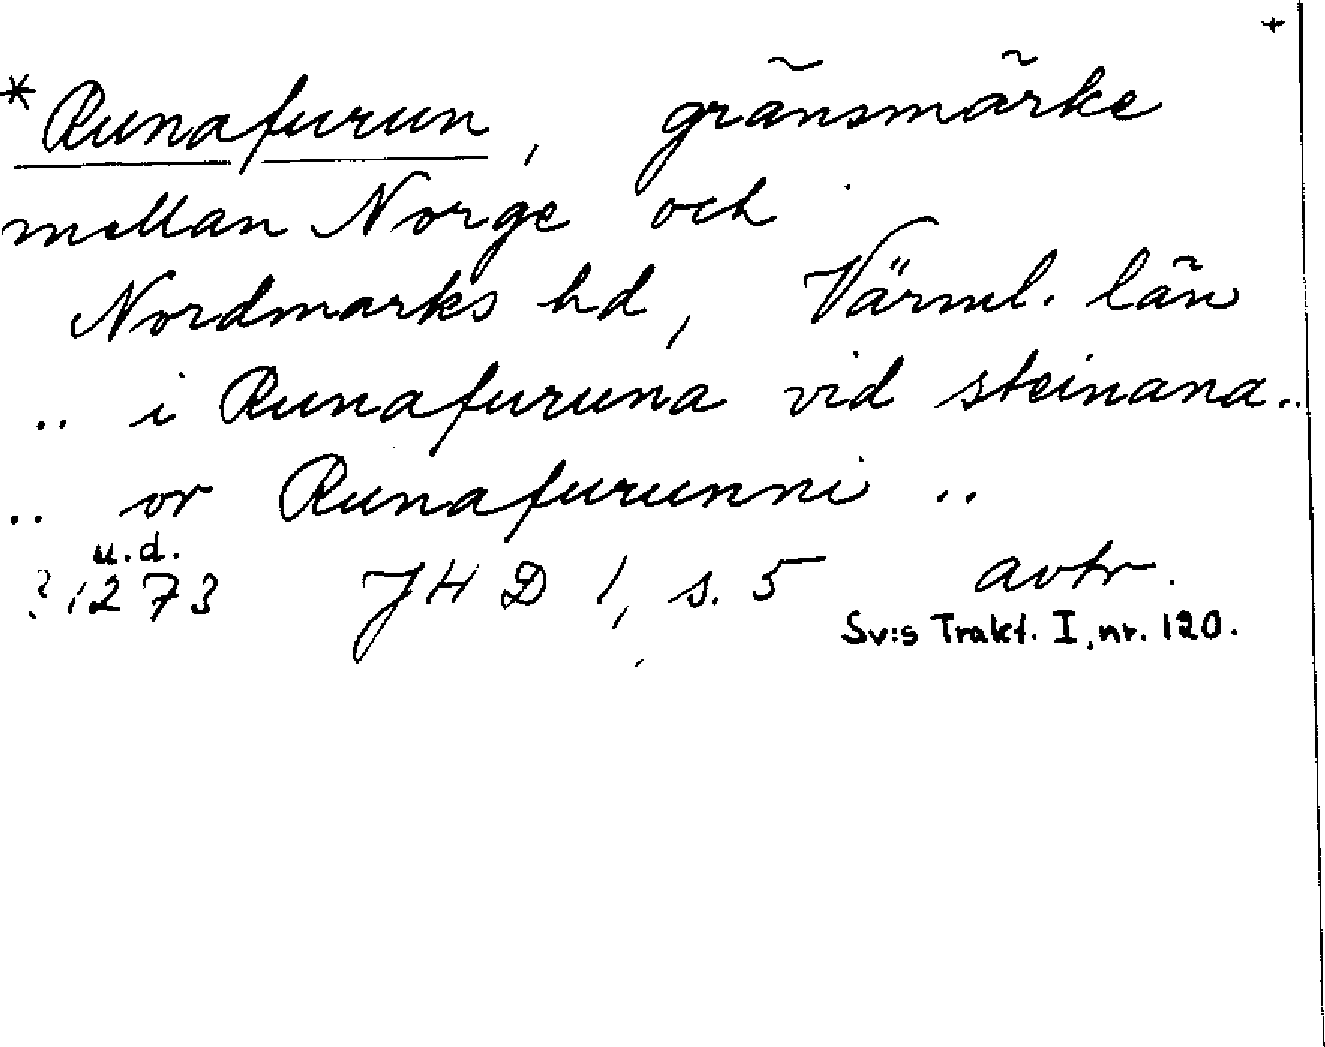 +
*Runafurun, gränsmärke
mellan Norge och
Nordmarks hd, Värml. län
.. i Runafuruna vid steinana..
.. or Runafurunni ..
u.d.
?1273 JHD 1, s. 5 avtr.
Sv:s Trakt. I, nr. 120.